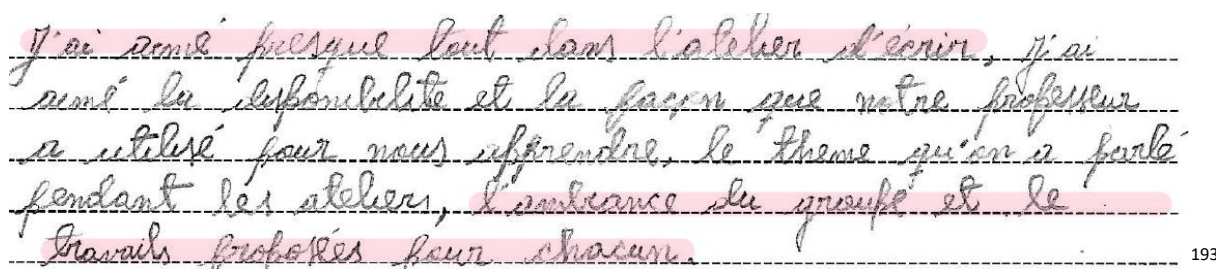 J'ai aimé presque tout dans l'atelier d'écrir, j'ai
aimé la disponibilité et la façon que notre professeur
a utilisé pour nous apprendre, le theme qu'on a parlé
pendant les ateliers, l'ambiance du groupe et le
travails proposées pour chacun.
193